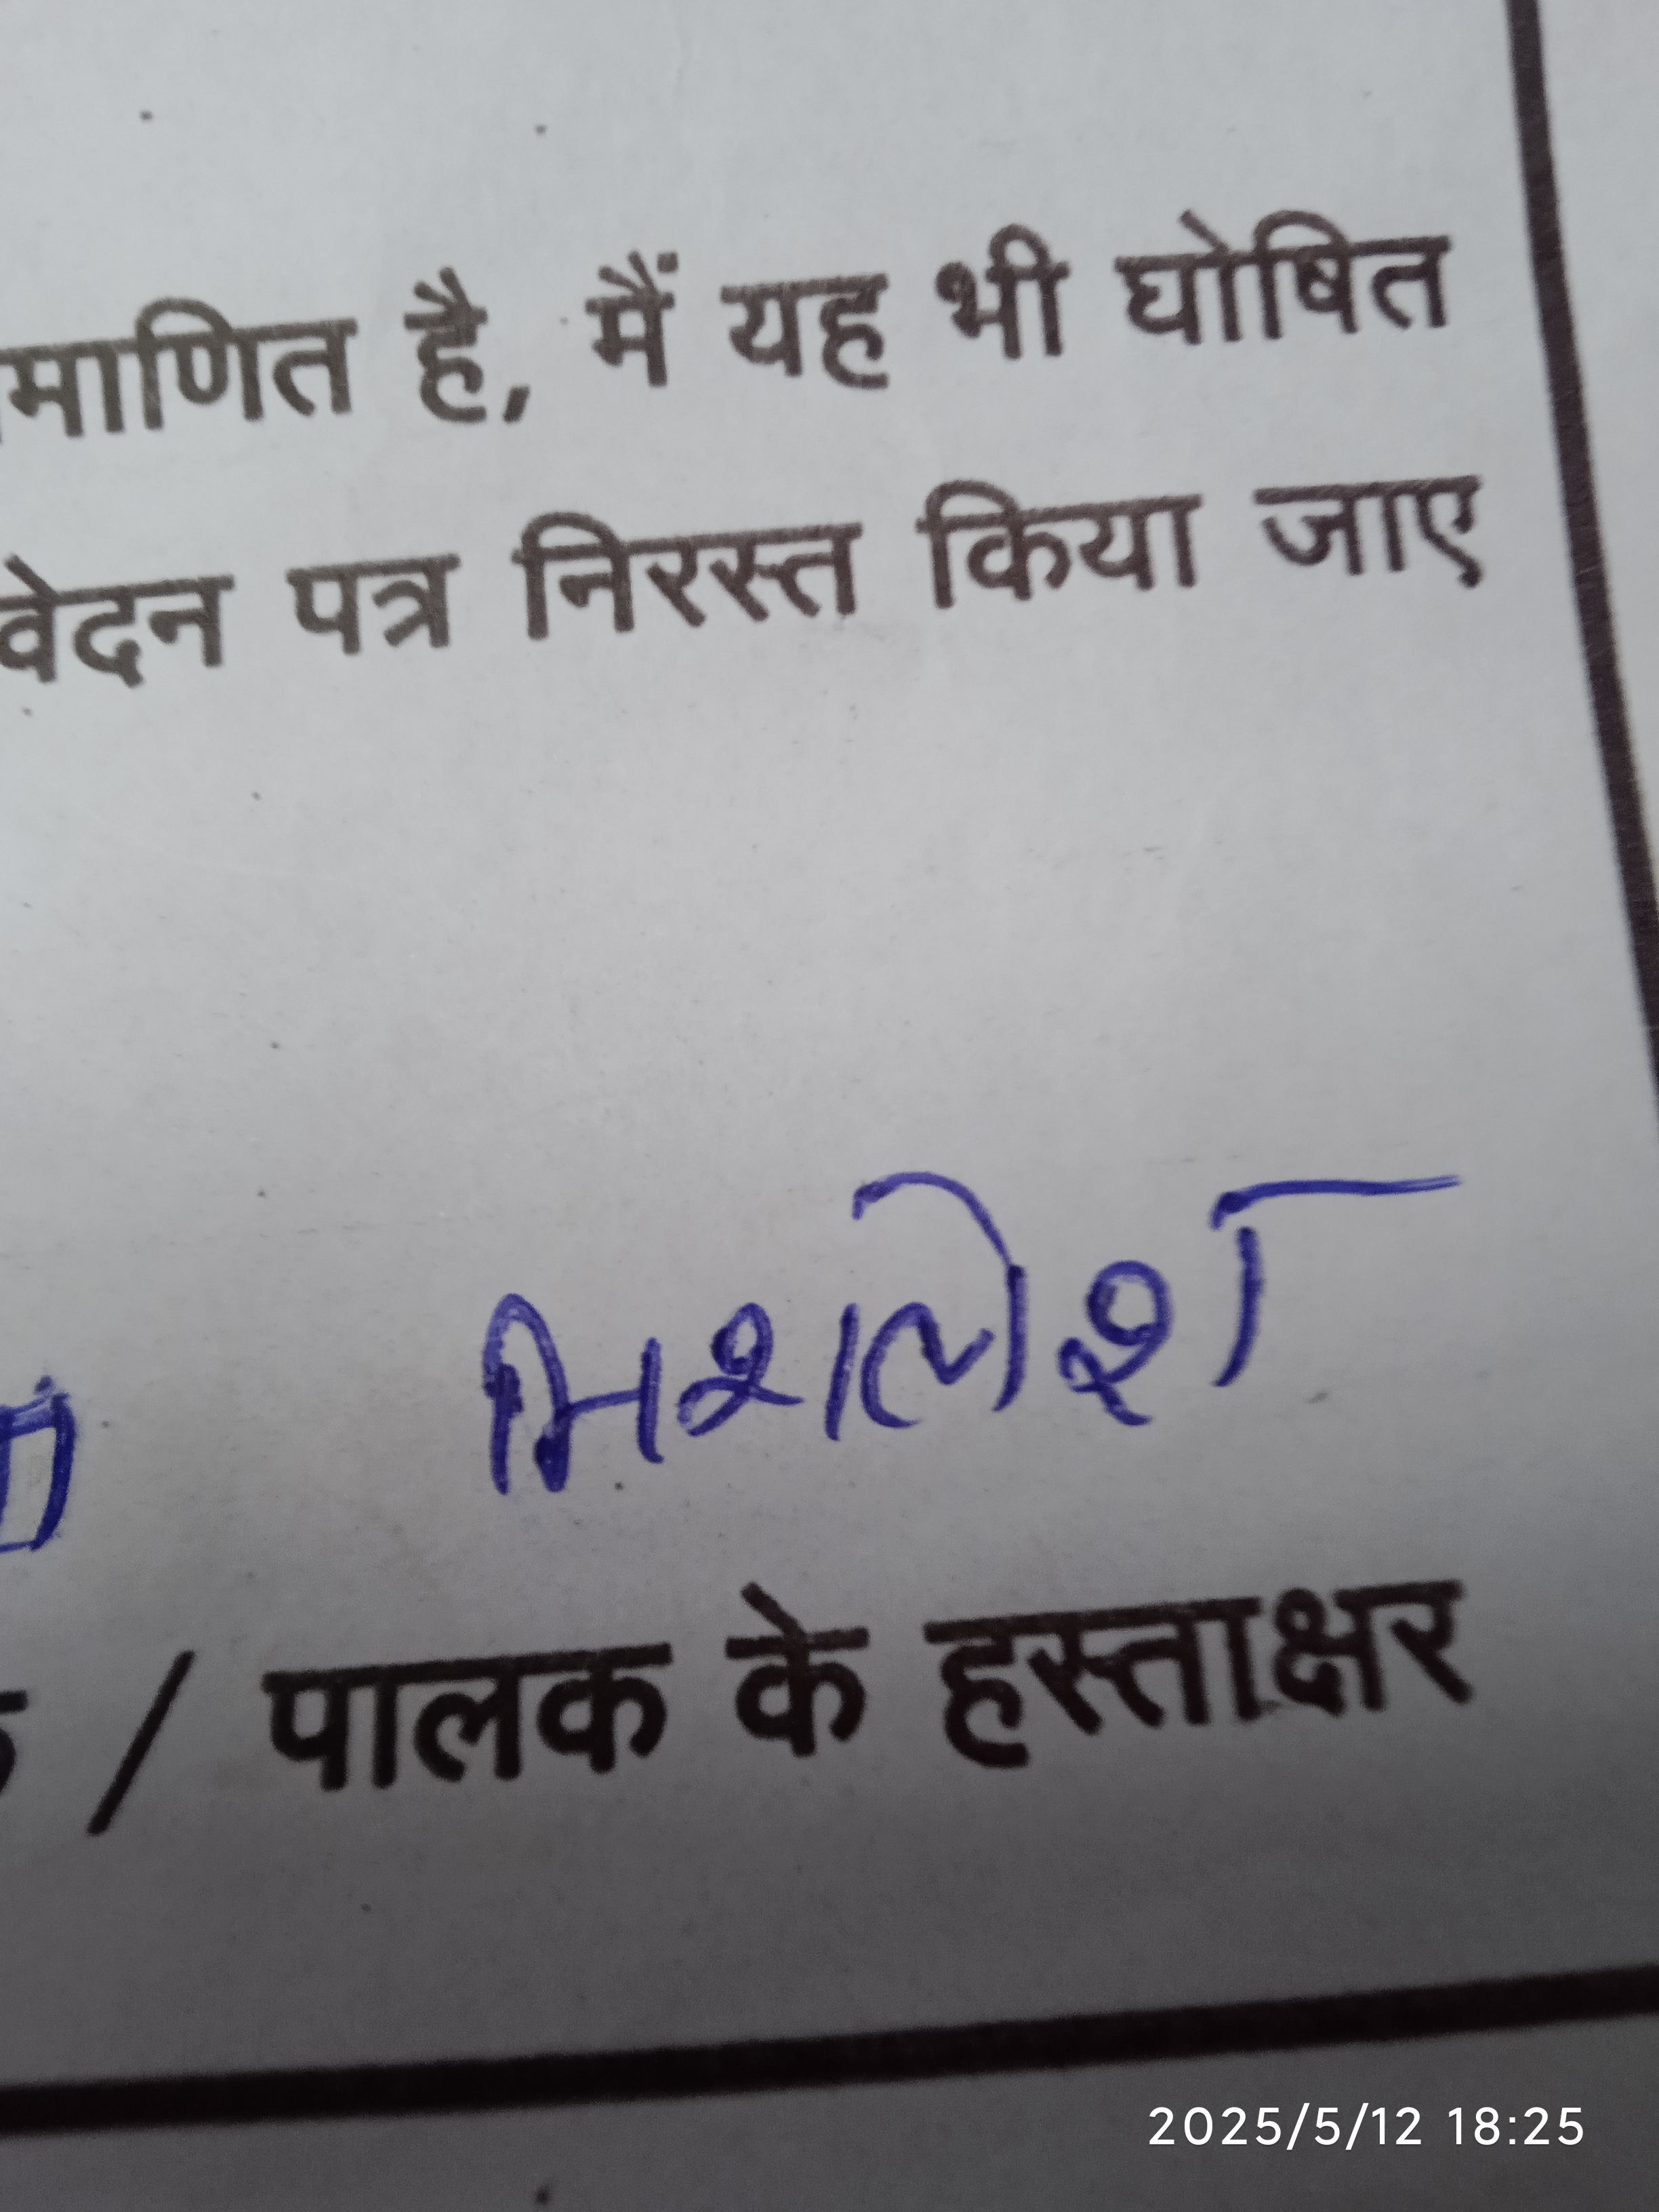 माणित है, मैं यह भी घोषित
वेदन पत्र निरस्त किया जाए
मिथलेश
/ पालक के हस्ताक्षर
2025/5/12 18:25